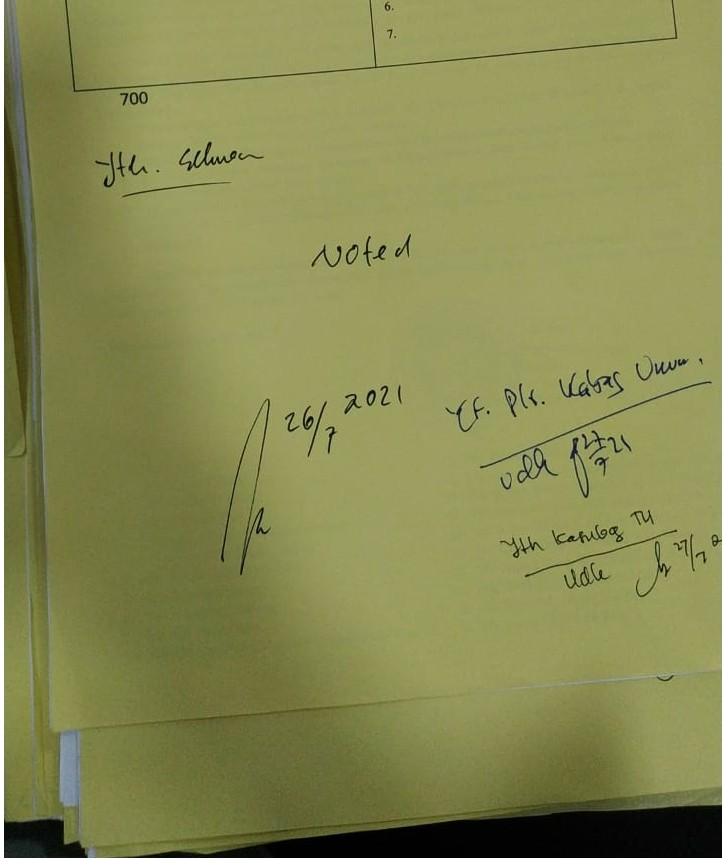 6.
7.
700
Yth.
Noted
26/7 2021
Plt. Kabag Umum.
udk 27/7 21
Yth Kasubag TU
Udk 27/7